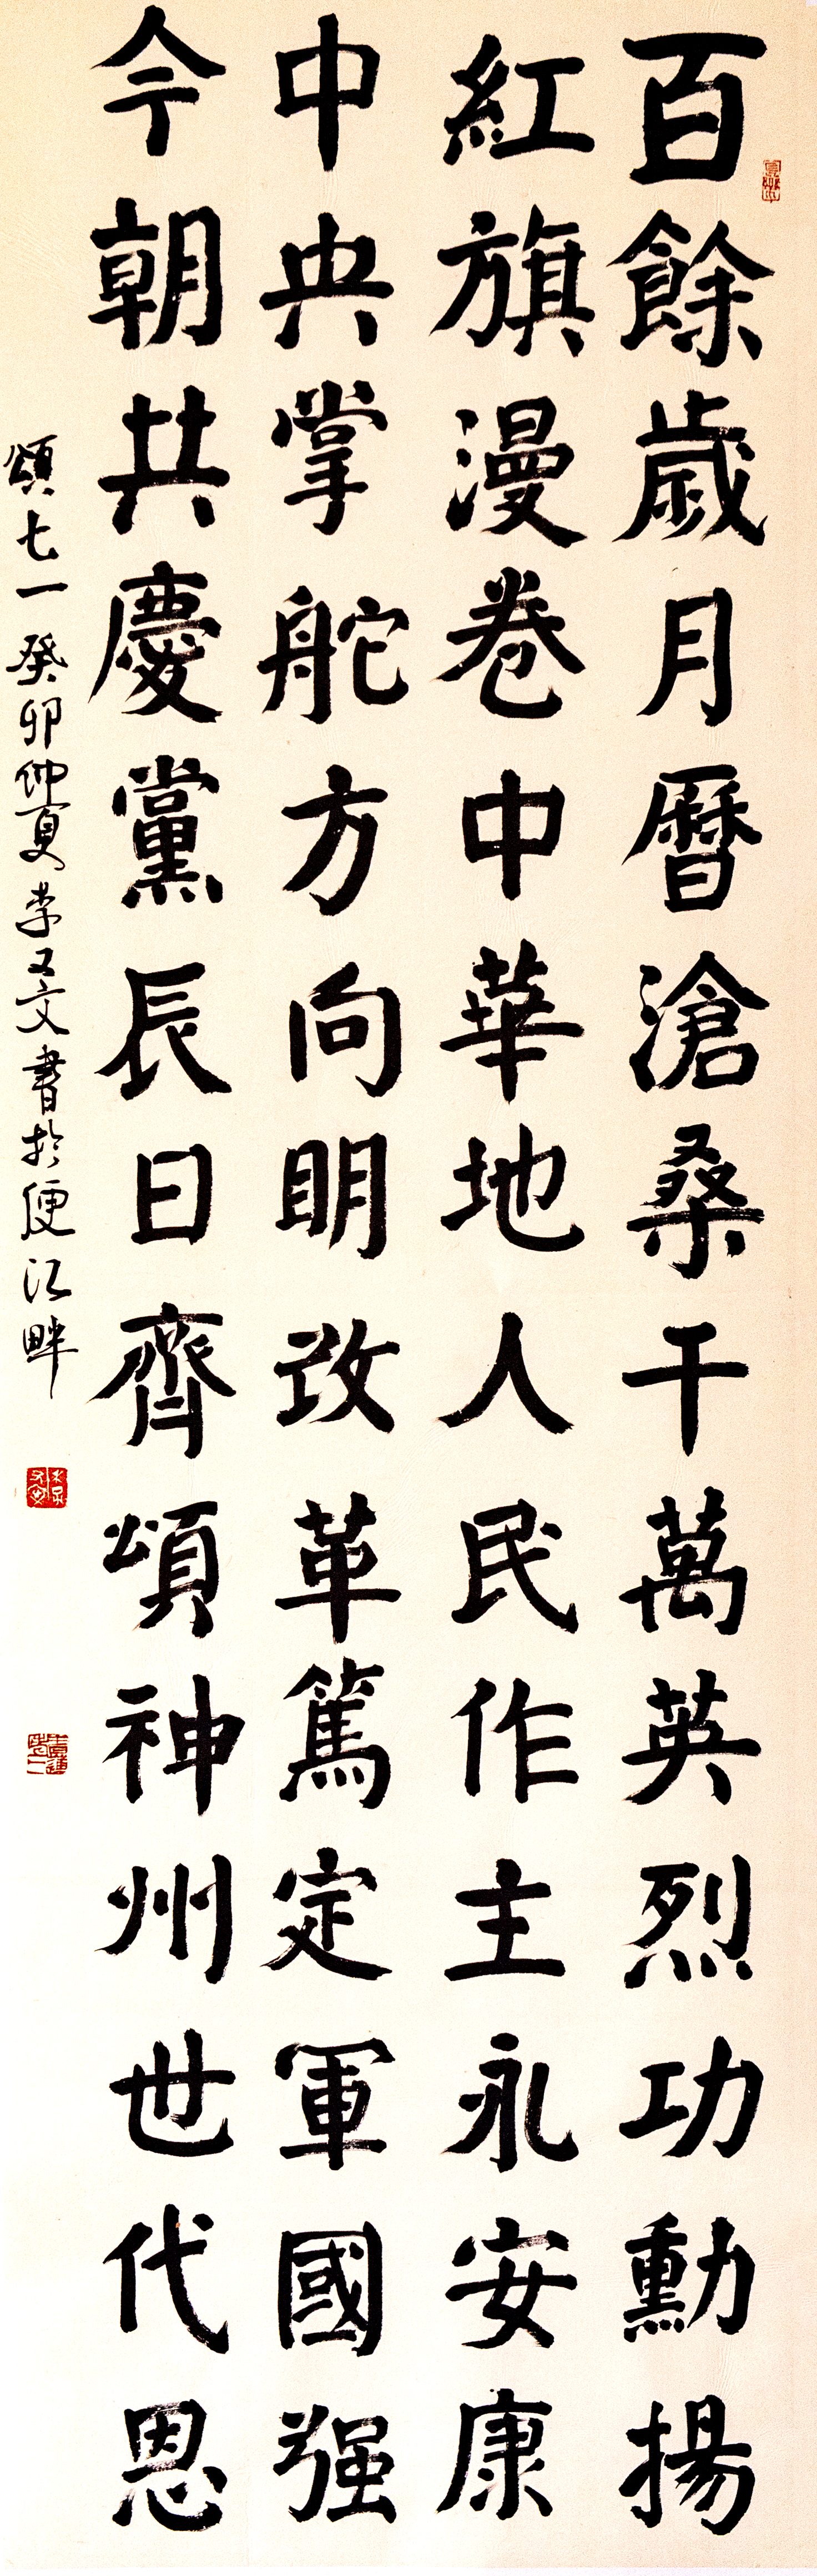 百餘歲月曆滄桑千萬英烈功勳揚
紅旗漫卷中華地人民作主永安康
中央掌舵方向明改革篤定軍國强
今朝共慶黨辰日齊頌神州世代恩
頌七一癸卯仲夏李又文書於便江畔